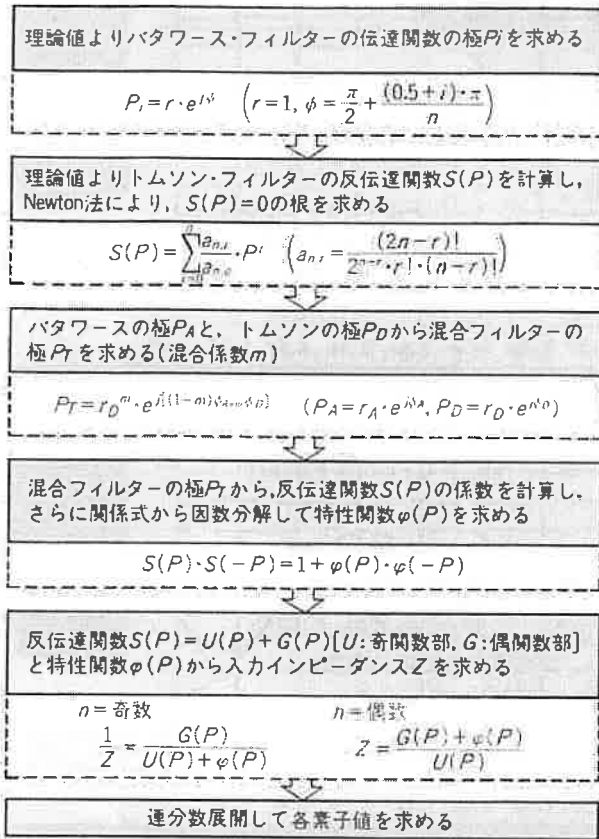 理論値よりバタワース・フィルターの伝達関数の極Piを求める
P_i = r・e^{jφ} (r=1, φ = π/2 + (0.5+i)・π/n)
理論値よりトムソン・フィルターの反伝達関数S(P)を計算し,
Newton法により, S(P)=0の根を求める
S(P) = Σ a_{n,r}/a_{n,0}・P^r (a_{n,r} = (2n-r)!/(2^{n-r}・r!・(n-r)!))
バタワースの極P_Aと, トムソンの極P_Dから混合フィルターの
極P_Tを求める(混合係数m)
P_T = r_D^m・e^{j[(1-m)φ_A+mφ_D]} (P_A = r_A・e^{jφ_A}, P_D = r_D・e^{jφ_D})
混合フィルターの極P_Tから,反伝達関数S(P)の係数を計算し,
さらに関係式から因数分解して特性関数φ(P)を求める
S(P)・S(-P)=1+φ(P)・φ(-P)
反伝達関数S(P)=U(P)+G(P)[U:奇関数部, G:偶関数部]
と特性関数φ(P)から入力インピーダンスZを求める
n=奇数 n=偶数
1/Z = G(P)/(U(P)+φ(P)) Z = (G(P)+φ(P))/U(P)
連分数展開して各素子値を求める